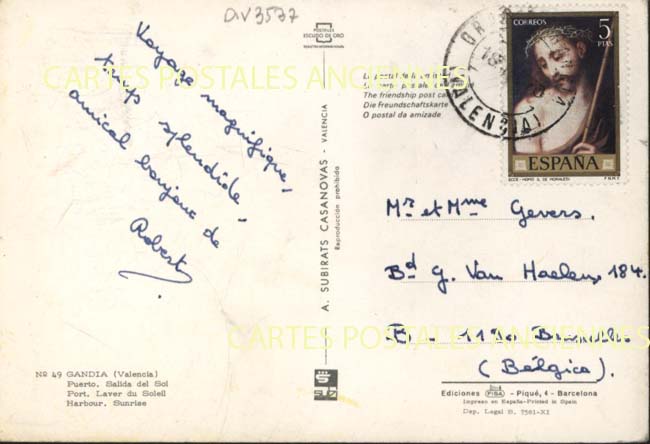 DIV3577
POSTALES
ESCUDO DE ORO
CARTES POSTALES ANCIENNES
Voyage magnifique,
temps splendide.
amical bonjour de
Robert
A. SUBIRATS CASANOVAS - VALENCIA
Reproducción prohibida
The friendship post card
Die Freundschaftskarte
O postal da amizade
CORREOS
5
PTAS
ESPAÑA
ECCE-HOMO (L. DE MORALES)
F.N.M.T.
VALENCIA
Mr et Mme Gevers.
Bd G. Van Haelen, 184.
1190 Bruxelles
(Bélgica).
CARTES POSTALES ANCIENNES
Nº 49 GANDIA (Valencia)
Puerto. Salida del Sol
Port. Laver du Soleil
Harbour. Sunrise
Ediciones FISA - Piqué, 4 - Barcelona
Impreso en España-Printed in Spain
Dep. Legal B. 7501-XI